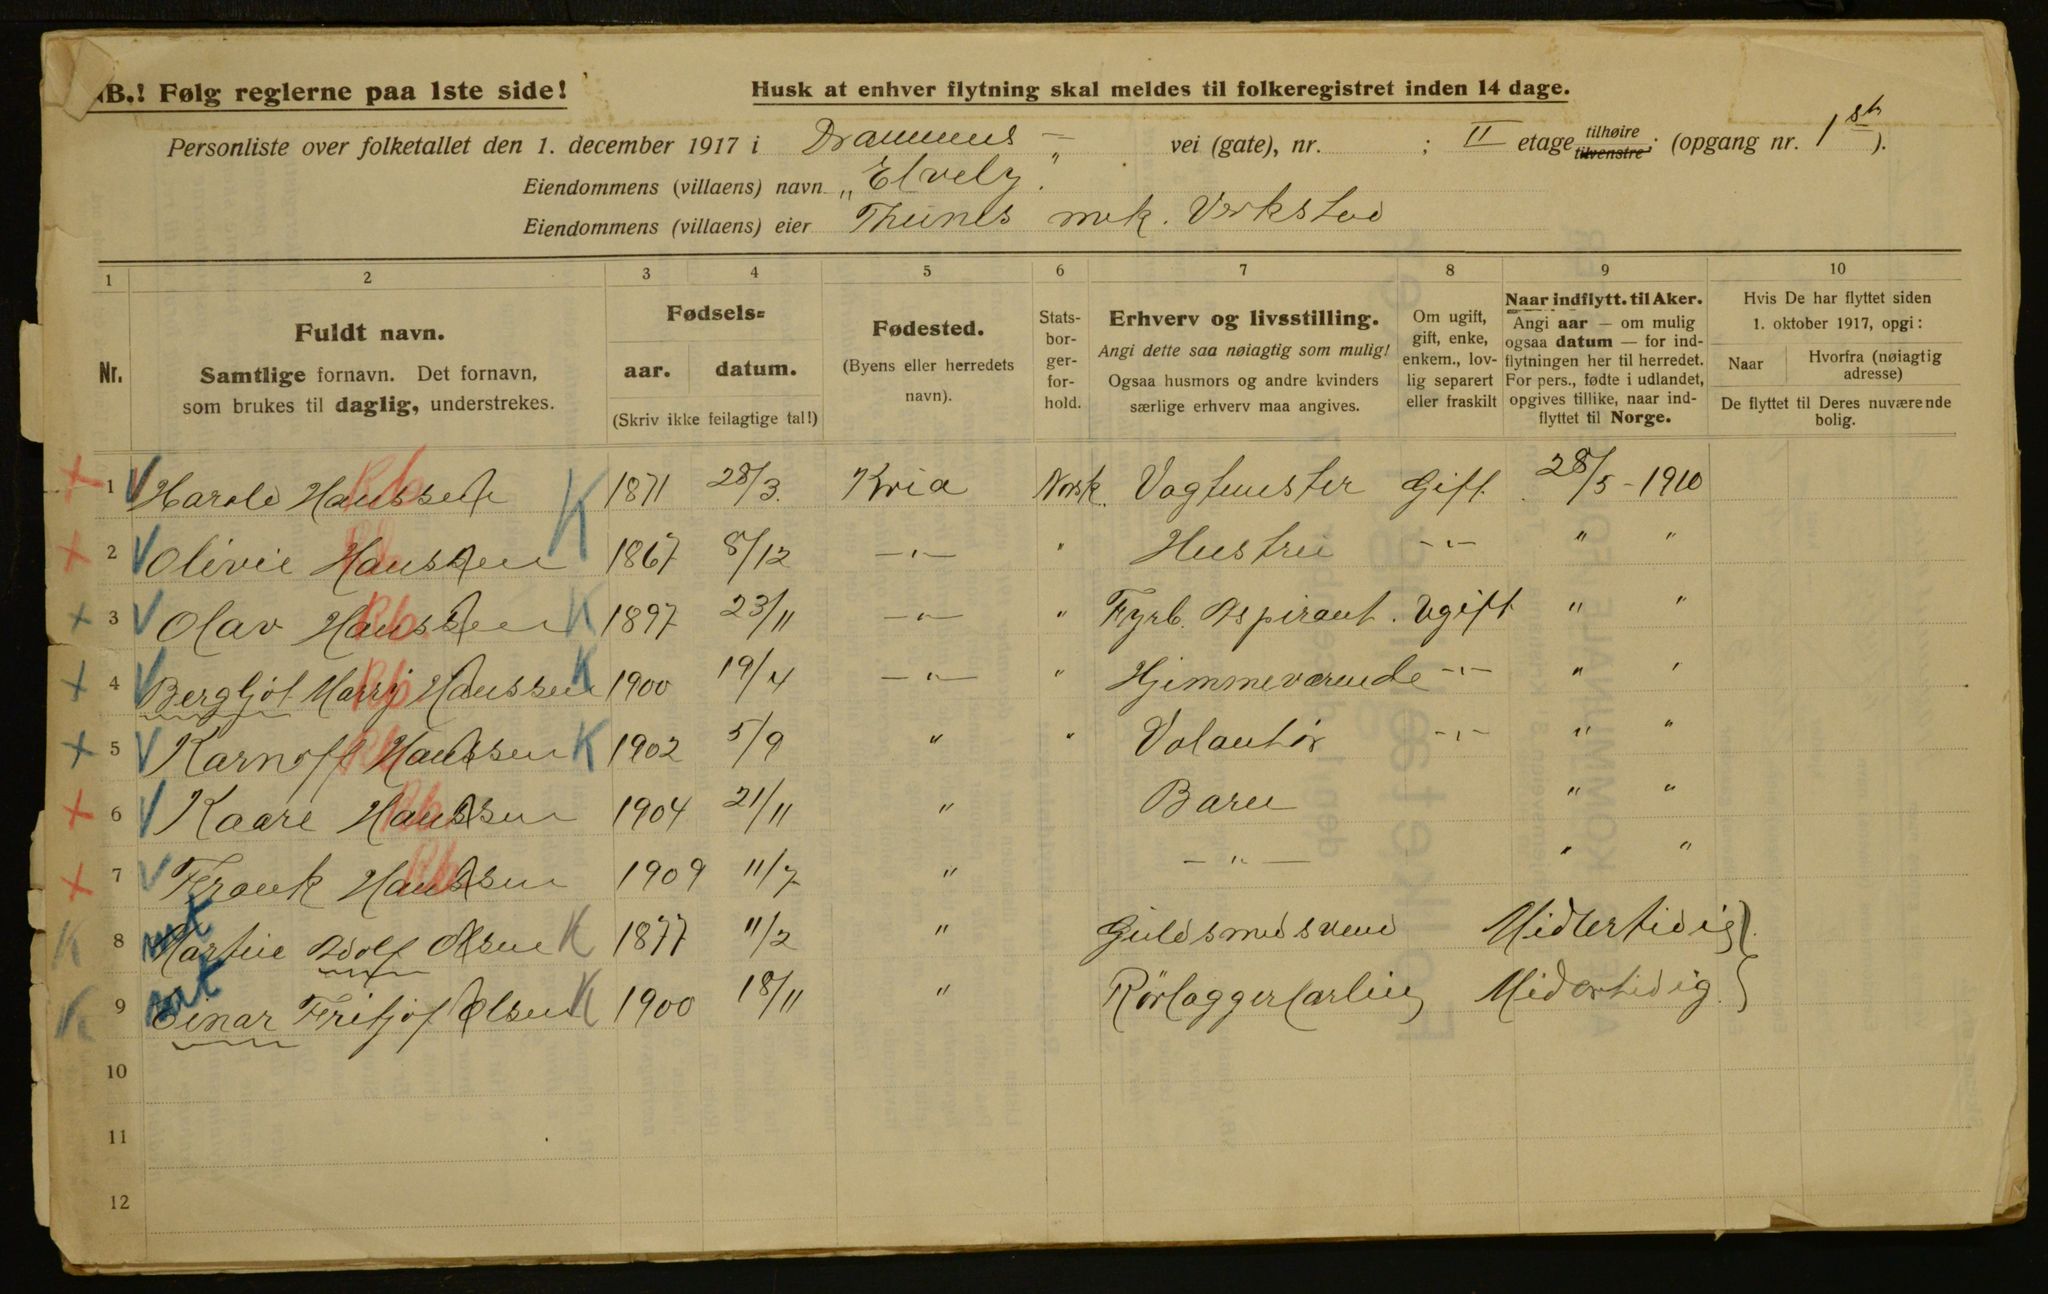 NB.! Følg reglerne paa 1ste side!
Husk at enhver flytning skal meldes til folkeregistret inden 14 dage.
Personliste over folketallet den 1. december 1917 i Drammens — vei (gate), nr. ; II etage tilhøire tilvenstre; (opgang nr. 1 st).
Eiendommens (villaens) navn „Elvely."
Eiendommens (villaens) eier Thunes mek. Verksted
1 2 3 4 5 6 7 8 9 10
Nr.
Fuldt navn.
Samtlige fornavn. Det fornavn, som brukes til daglig, understrekes.
Fødsels=
aar. datum.
(Skriv ikke feilagtige tal!)
Fødested.
(Byens eller herredets navn).
Stats-borger-for-hold.
Erhverv og livsstilling.
Angi dette saa nøiagtig som mulig!
Ogsaa husmors og andre kvinders særlige erhverv maa angives.
Om ugift, gift, enke, enkem., lov-lig separert eller fraskilt
Naar indflytt. til Aker.
Angi aar — om mulig ogsaa datum — for ind-flytningen her til herredet. For pers., fødte i udlandet, opgives tillike, naar ind-flyttet til Norge.
Hvis De har flyttet siden 1. oktober 1917, opgi:
Naar Hvorfra (nøiagtig adresse)
De flyttet til Deres nuværende bolig.
1 Harald Hanssen K 1871 28/3. Kria Norsk. Vagtmester Gift. 28/5 - 1910
2 Olivie Hanssen 1867 8/12 —"— " Hustru —"— " "
3 Olav Hanssen K 1897 23/11 —"— " Fyrb. Aspirant. Ugift " "
4 Bergljot Marry Hanssen K 1900 19/4 —"— " Hjemmeværende —"— " "
5 Karnoff Hanssen K 1902 5/9 " " Volantør —"— " "
6 Kaare Hanssen 1904 21/11 " Barn " "
7 Frank Hanssen 1909 11/7 " —"— " "
8 Martin Adolf Olsen K 1877 11/2 " Guldsmedsvend Midlertidig
9 Einar Fritjof Olsen K 1900 18/11 " Rørlæggerlærling Midlertidig.
10
11
12